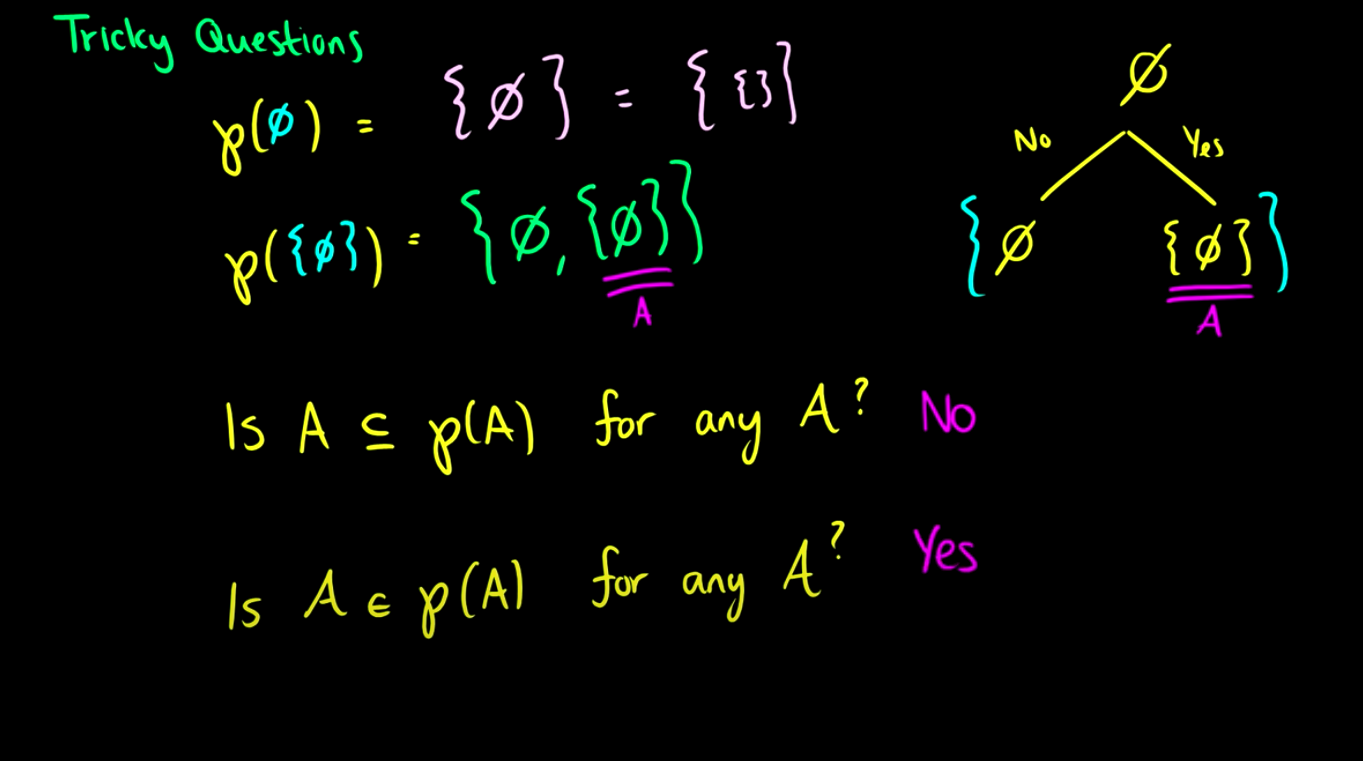 Tricky Questions
℘(∅) = {∅} = {{}}
℘({∅}) = {∅, {∅}}
A
∅
No Yes
{∅ {∅}}
A
Is A ⊆ ℘(A) for any A? No
Is A ∈ ℘(A) for any A? Yes